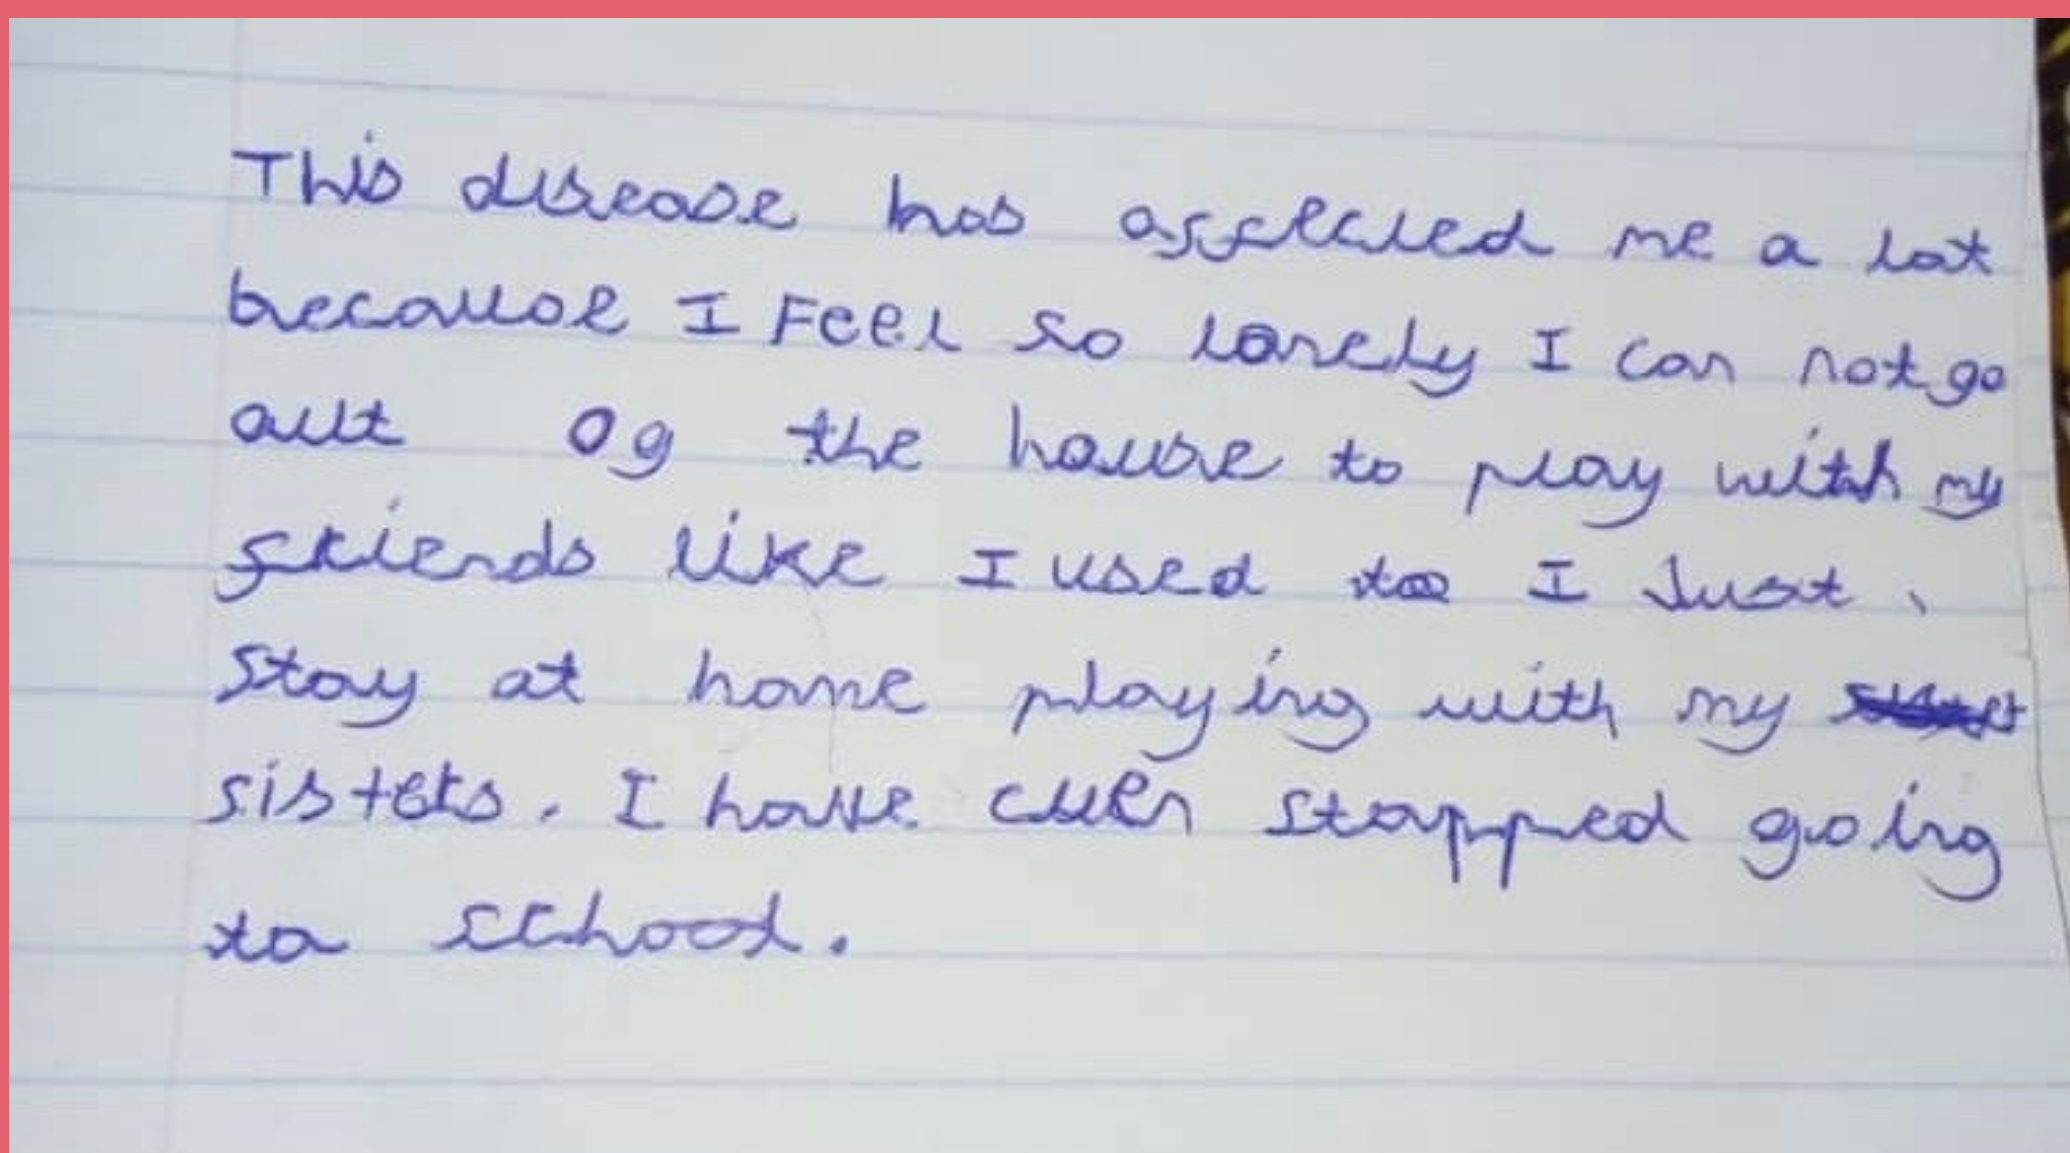 This disease has affected me a lot
because I Feel so lonely I can not go
out of the house to play with my
friends like I used to I Just
stay at home playing with my
sisters. I have even stopped going
to school.